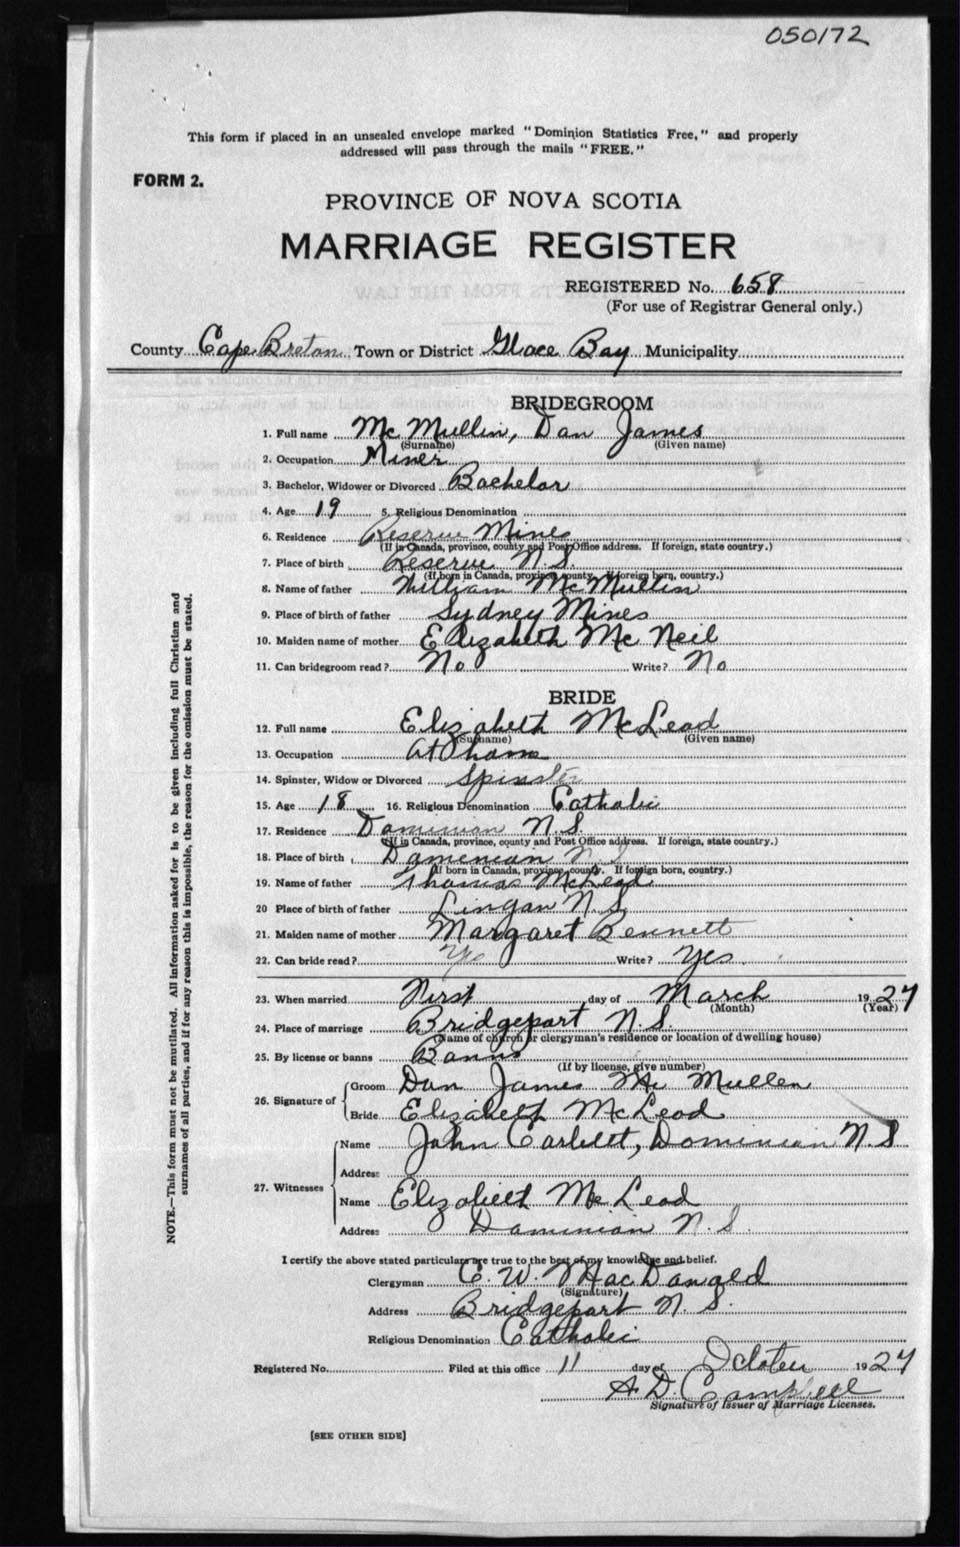 050172
This form if placed in an unsealed envelope marked "Dominion Statistics Free," and properly
addressed will pass through the mails "FREE."
FORM 2.
PROVINCE OF NOVA SCOTIA
MARRIAGE REGISTER
REGISTERED No. 658
(For use of Registrar General only.)
County Cape Breton Town or District Glace Bay Municipality
BRIDEGROOM
1. Full name McMullin, Dan James
(Surname) (Given name)
2. Occupation Miner
3. Bachelor, Widower or Divorced Bachelor
4. Age 19 5. Religious Denomination
6. Residence Reserve Mines
(If in Canada, province, county and Post Office address. If foreign, state country.)
7. Place of birth Reserve N.S.
(If born in Canada, province, county. If foreign born, country.)
8. Name of father William McMullin
9. Place of birth of father Sydney Mines
10. Maiden name of mother Elizabeth McNeil
11. Can bridegroom read? No Write? No
BRIDE
12. Full name Elizabeth McLeod
(Surname) (Given name)
13. Occupation At home
14. Spinster, Widow or Divorced Spinster
15. Age 18 16. Religious Denomination Catholic
17. Residence Dominion N.S.
(If in Canada, province, county and Post Office address. If foreign, state country.)
18. Place of birth Dominion N.S
(If born in Canada, province, county. If foreign born, country.)
19. Name of father Thomas McLeod
20 Place of birth of father Lingan N.S
21. Maiden name of mother Margaret Bennett
22. Can bride read? Yes Write? Yes.
23. When married First day of March 1927
(Month) (Year)
24. Place of marriage Bridgeport N.S
(Name of church or clergyman's residence or location of dwelling house)
25. By license or banns Banns
(If by license, give number)
26. Signature of Groom Dan James Mc Mullen
Bride Elizabeth McLeod
27. Witnesses Name John Corbett, Dominion N.S
Address
Name Elizabeth McLeod
Address Dominion N.S.
I certify the above stated particulars are true to the best of my knowledge and belief.
Clergyman C. W. MacDonald
(Signature)
Address Bridgeport N.S.
Religious Denomination Catholic
Registered No. Filed at this office 11 day of October 1927
A. D. Campbell
Signature of Issuer of Marriage Licenses.
[SEE OTHER SIDE]
NOTE.—This form must not be mutilated. All information asked for is to be given including full Christian and
surnames of all parties, and if for any reason this is impossible, the reason for the omission must be stated.